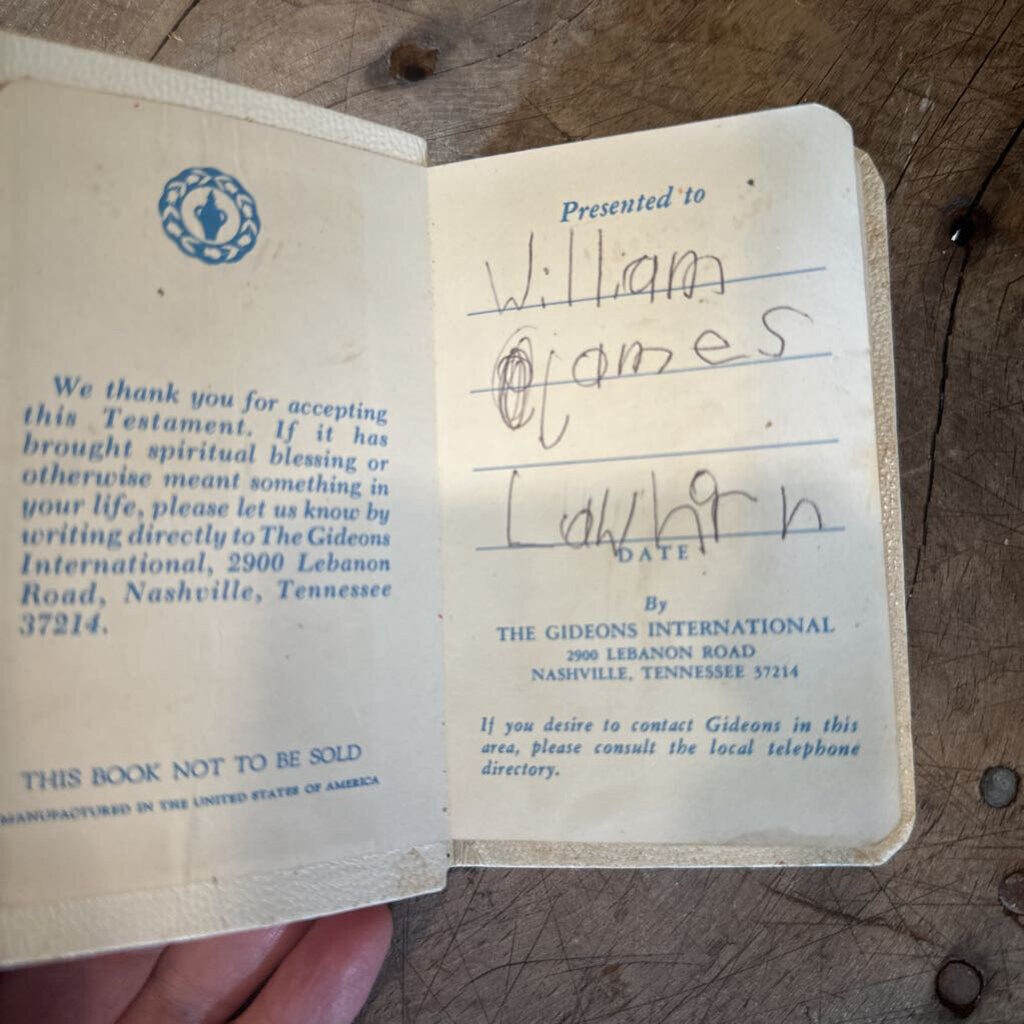 We thank you for accepting
this Testament. If it has
brought spiritual blessing or
otherwise meant something in
your life, please let us know by
writing directly to The Gideons
International, 2900 Lebanon
Road, Nashville, Tennessee
37214.
THIS BOOK NOT TO BE SOLD
MANUFACTURED IN THE UNITED STATES OF AMERICA
Presented to
William
james
DATE
By
THE GIDEONS INTERNATIONAL
2900 LEBANON ROAD
NASHVILLE, TENNESSEE 37214
If you desire to contact Gideons in this
area, please consult the local telephone
directory.